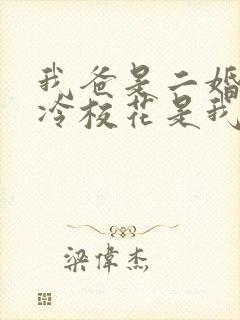 我爸是二婚
冷校花是我
梁偉杰